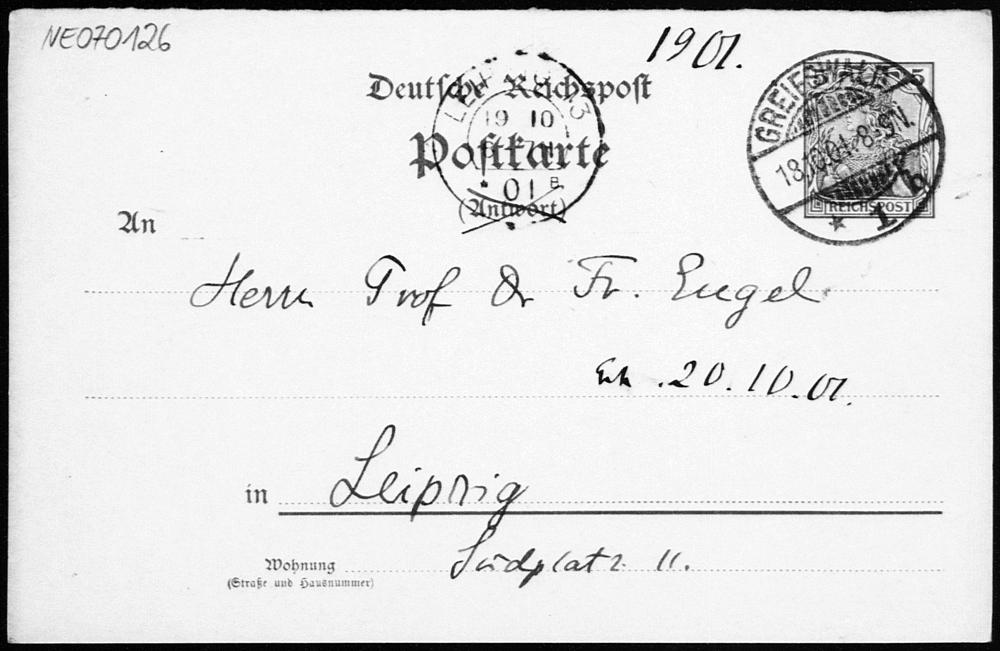 NE070126
1901.
Deutsche Reichspost
Postkarte
(Antwort)
LEIPZIG 13
19 10
01 B
GREIFSWALD
18.10.01 8-9N.
* 1 b
5
REICHSPOST
An
Herrn Prof Dr Fr. Engel
20.10.01.
in Leipzig
Wohnung Südplatz 11.
(Straße und Hausnummer)